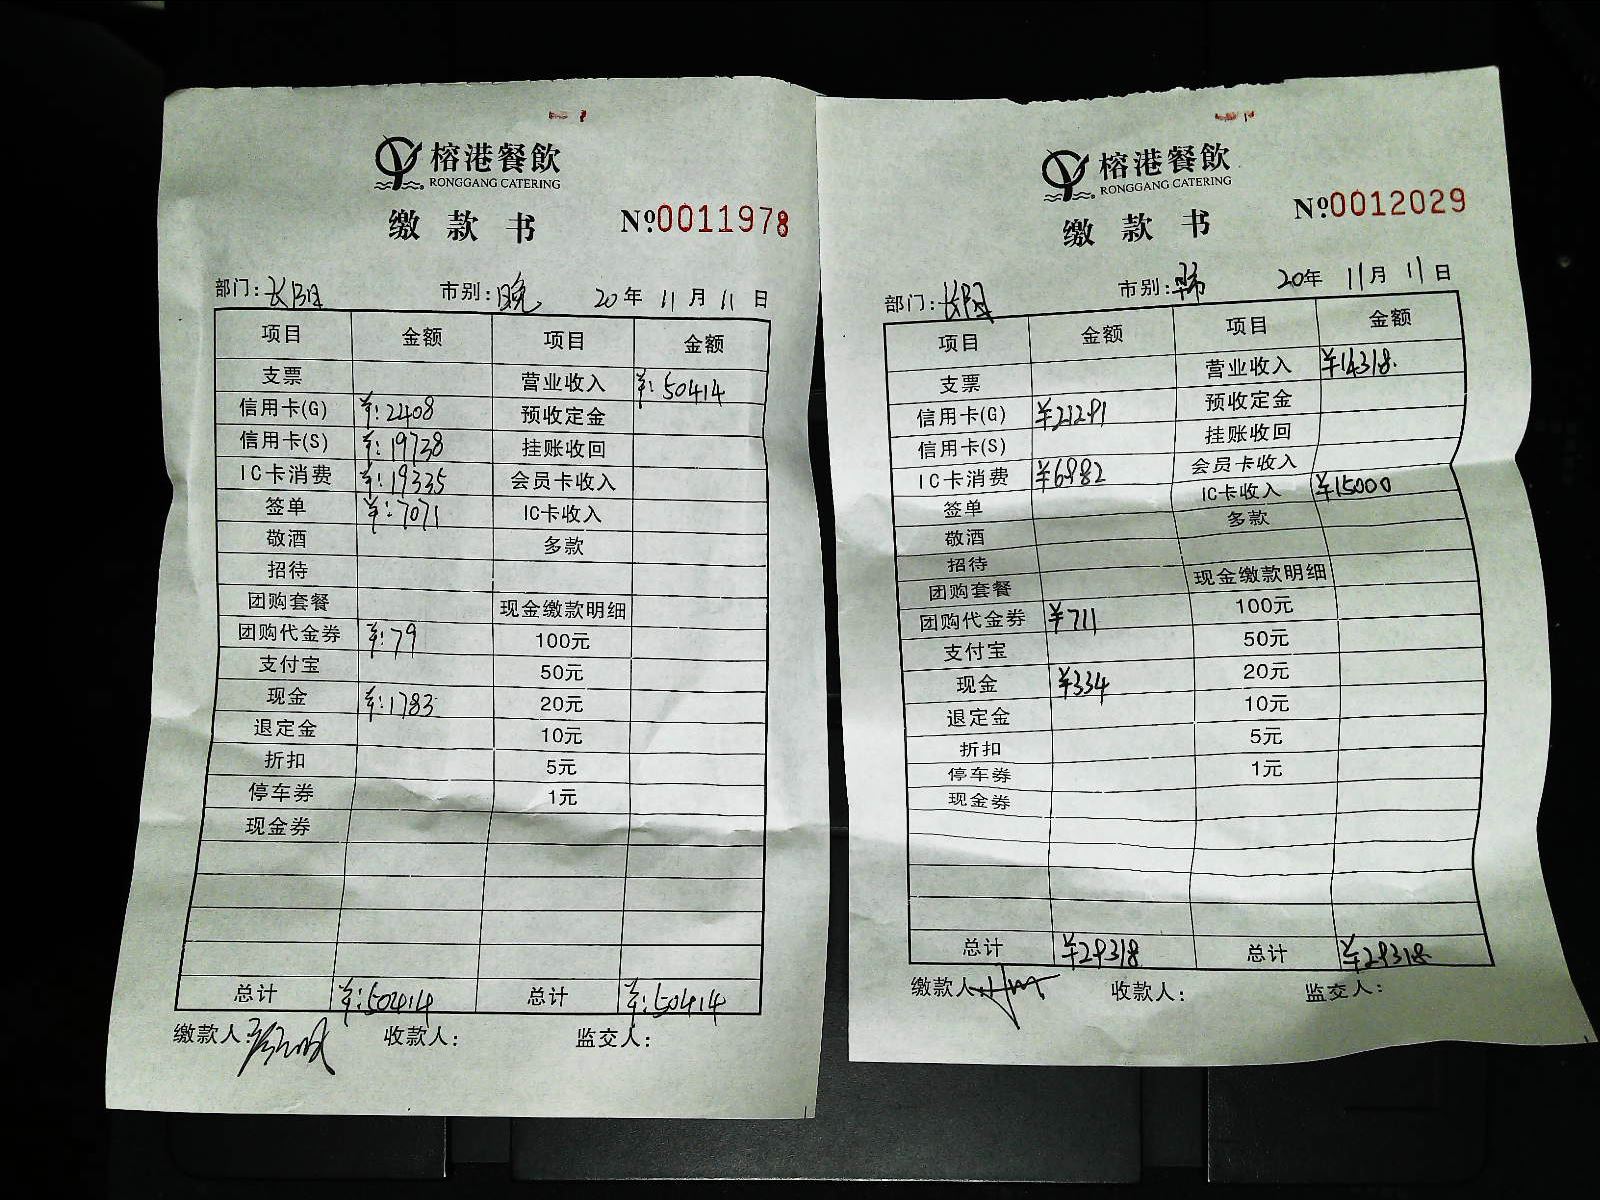 榕港餐飲
RONGGANG CATERING
缴款书 №0011978
部门:长阳 市别:晚 20年11月11日
项目 金额 项目 金额
支票 营业收入 ¥:50414
信用卡(G) ¥:2408 预收定金
信用卡(S) ¥:19738 挂账收回
IC卡消费 ¥:19335 会员卡收入
签单 ¥:7071 IC卡收入
敬酒 多款
招待
团购套餐 现金缴款明细
团购代金券 ¥:79 100元
支付宝 50元
现金 ¥:1783 20元
退定金 10元
折扣 5元
停车券 1元
现金券
总计 ¥:50414 总计 ¥:50414
缴款人: 收款人: 监交人:
榕港餐飲
RONGGANG CATERING
缴款书 №0012029
部门:长阳 市别: 20年11月11日
项目 金额 项目 金额
支票 营业收入 ¥14318.
信用卡(G) ¥21291 预收定金
信用卡(S) 挂账收回
IC卡消费 ¥6982 会员卡收入
签单 IC卡收入 ¥15000
敬酒 多款
招待
团购套餐 现金缴款明细
团购代金券 ¥711 100元
支付宝 50元
现金 ¥334 20元
退定金 10元
折扣 5元
停车券 1元
现金券
总计 ¥29318 总计 ¥29318.
缴款人: 收款人: 监交人: